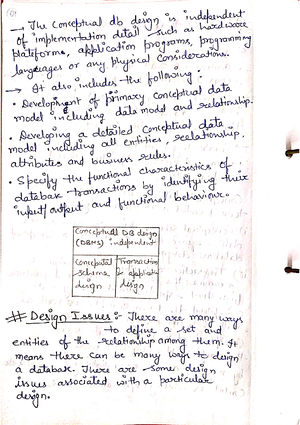 → The conceptual db design is independent
of implementation detail such as hardware
platforms, application programs, programming
languages or any physical considerations.
→ It also includes the following :
• Development of primary conceptual data
model including data model and relationship.
• Developing a detailed conceptual data
model including all entities, relationship,
attributes and business rules.
• Specify the functional characteristics of
database transactions by identifying their
input/output and functional behaviour.
Conceptual DB design
(DBMS) independent
Conceptual Transaction
schema & application
design design
# Design Issues :- There are many ways
to define a set and
entities of the relationship among them. It
means there can be many ways to design
a database. There are some design
issues associated with a particular
design.